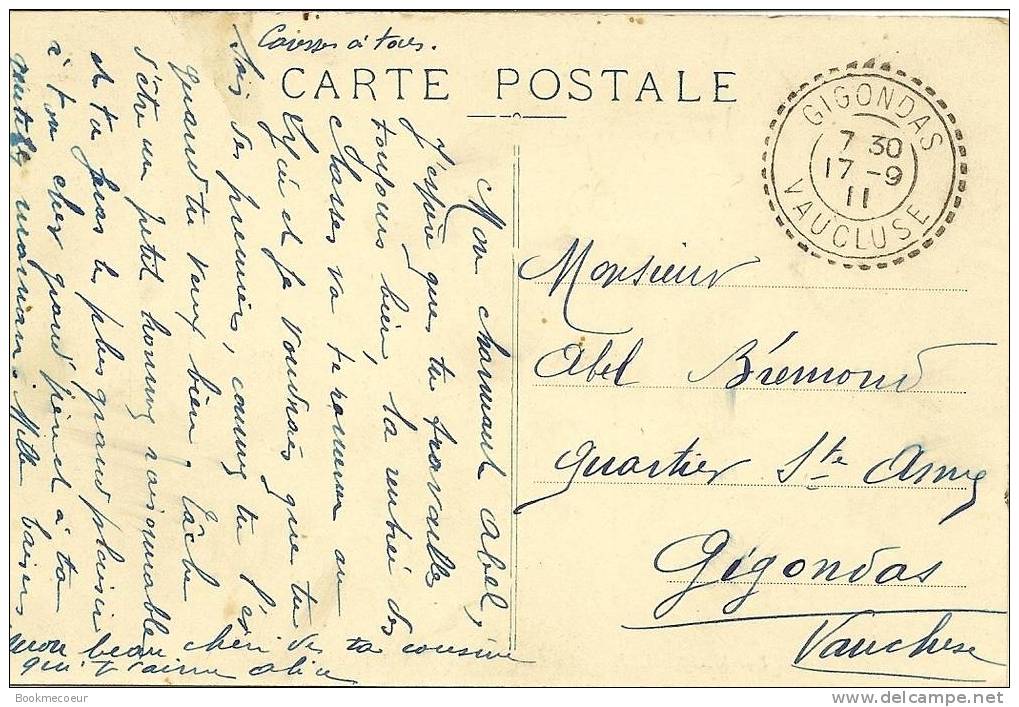 Caresses à tous.
CARTE POSTALE
GIGONDAS
7 30
17 -9
11
VAUCLUSE
Mon charmant Abel,
J'espère que tu travailles
toujours bien, la rentrée des
classes va te ramener au
Lycée et je voudrais que tu
sois des premiers, comme tu l'es
quand tu veux bien. Tâche
d'être un petit homme raisonnable
et tu feras le plus grand plaisir
à ton cher grand'père et à ta
gentille maman. Mille baisers
mon beau chéri de ta cousine
qui t'aime Alice
Monsieur
Abel Brémond
quartier Ste Anne
Gigondas
Vaucluse
Bookmecoeur
www.delcampe.net